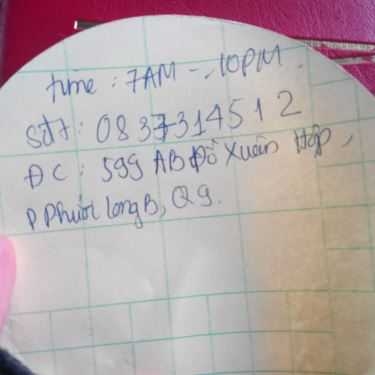 time : 7AM - 10PM.
Sđt : 0837314512
ĐC : 599 AB Đỗ Xuân Hợp,
P Phước Long B, Q9.